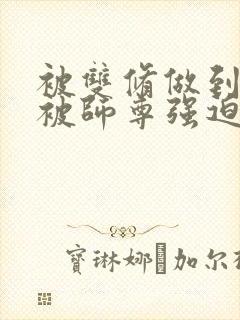 被雙脩做到
被師尊强迫
寶琳娜·加尔